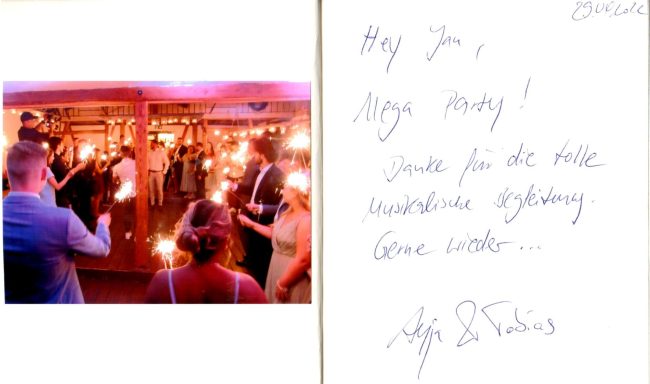 Hey Jan,
Mega Party!
Danke für die tolle
musikalische Begleitung.
Gerne wieder...
Anja & Tobias